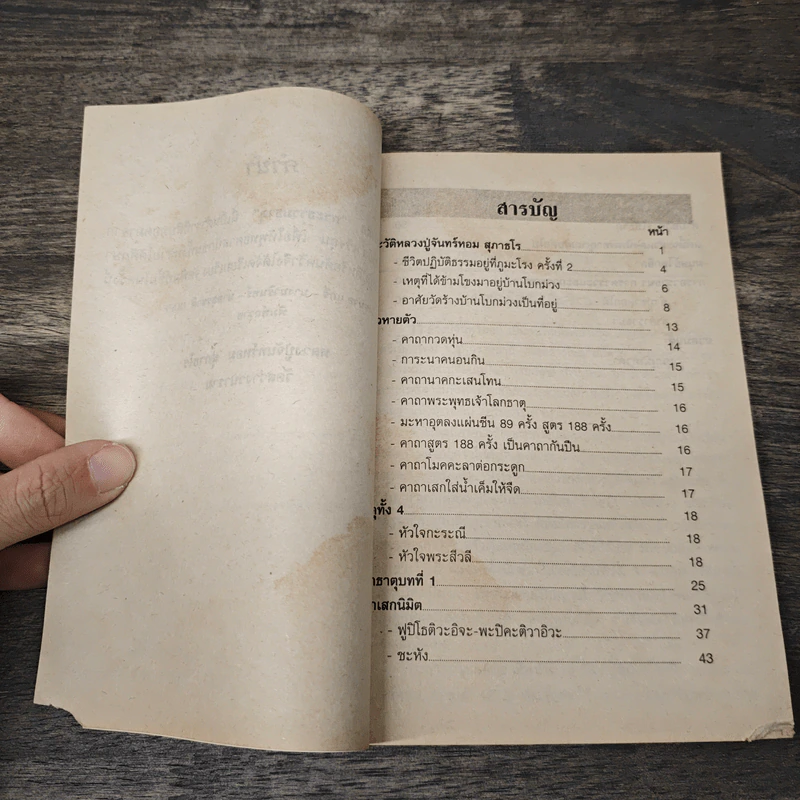 สารบัญ
หน้า
ะวัติหลวงปู่จันทร์หอม สุภาธโร 1
- ชีวิตปฏิบัติธรรมอยู่ที่ภูมะโรง ครั้งที่ 2 4
- เหตุที่ได้ข้ามโขงมาอยู่บ้านโบกม่วง 6
- อาศัยวัดร้างบ้านโบกม่วงเป็นที่อยู่ 8
วหายตัว 13
- คาถากวดหุ่น 14
- การะนาคนอนกิน 15
- คาถานาคกะเสนโทน 15
- คาถาพระพุทธเจ้าโลกธาตุ 16
- มะหาอุตลงแผ่นซีน 89 ครั้ง สูตร 188 ครั้ง 16
- คาถาสูตร 188 ครั้ง เป็นคาถากันปืน 16
- คาถาโมคคะลาต่อกระดูก 17
- คาถาเสกใส่น้ำเค็มให้จืด 17
ตุทั้ง 4 18
- หัวใจกะระณี 18
- หัวใจพระสีวลี 18
าธาตุบทที่ 1 25
าเสกนิมิต 31
- - ฟูปิโธติวะอิจะ-พะปิคะติวาอิวะ 37
- ชะหัง 43